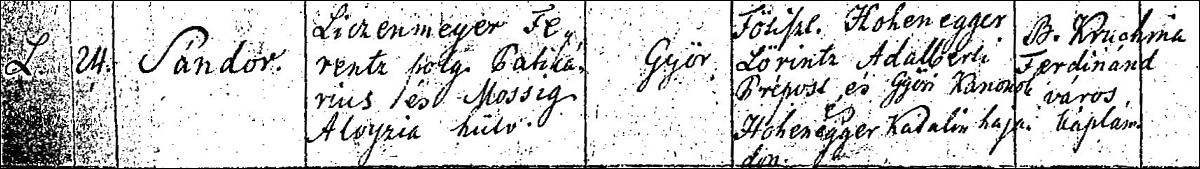 L. 24. Sándor.
Liczenmeyer Fe„
rentz polg. Patiká„
rius és Mossig
Aloyzia hütv.
Győr.
Főtiszt. Hohenegger
Lőrintz Adalberti
Prépost és Győri Kanonok
Hohenegger Katalin haja„
don.
B. Kruchina
Ferdinánd
város
káplán.